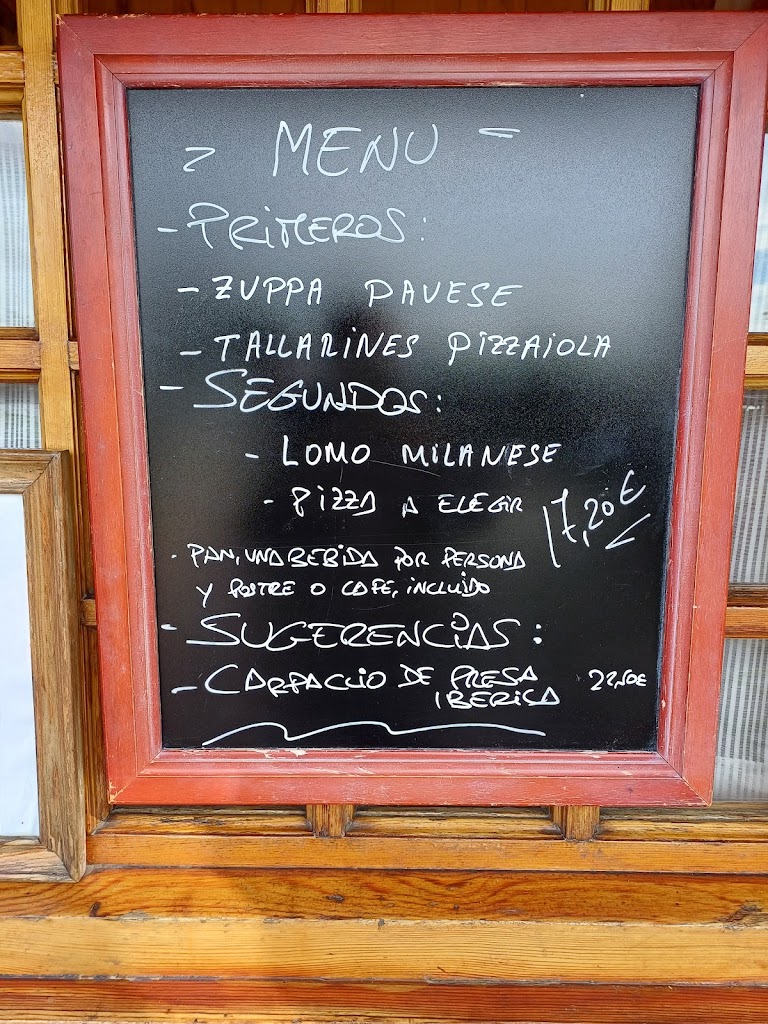 = MENU =
- PRIMEROS:
- ZUPPA PAVESE
- TALLARINES PIZZAIOLA
- SEGUNDOS:
- LOMO MILANESE
- PIZZA A ELEGIR 17,20€
- PAN, UNA BEBIDA POR PERSONA
Y POSTRE O CAFE, INCLUIDO
- SUGERENCIAS:
- CARPACCIO DE PRESA 22,50€
IBERICA